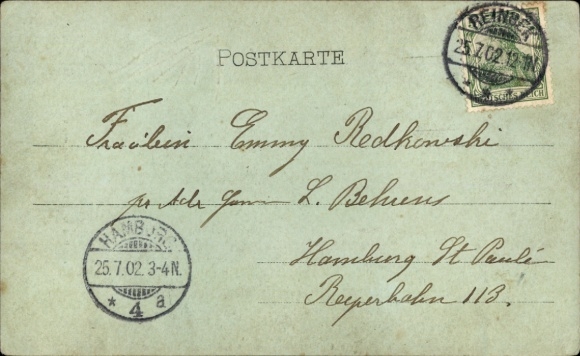 POSTKARTE
REINBEK
25.7.02.12-1N.
DEUTSCHES REICH
Fräulein Emmy Redkowski
pr Adr Herrn L. Behrens
Hamburg St Pauli
Reperbahn 113.
HAMBURG
25.7.02.3-4N.
* 4 a